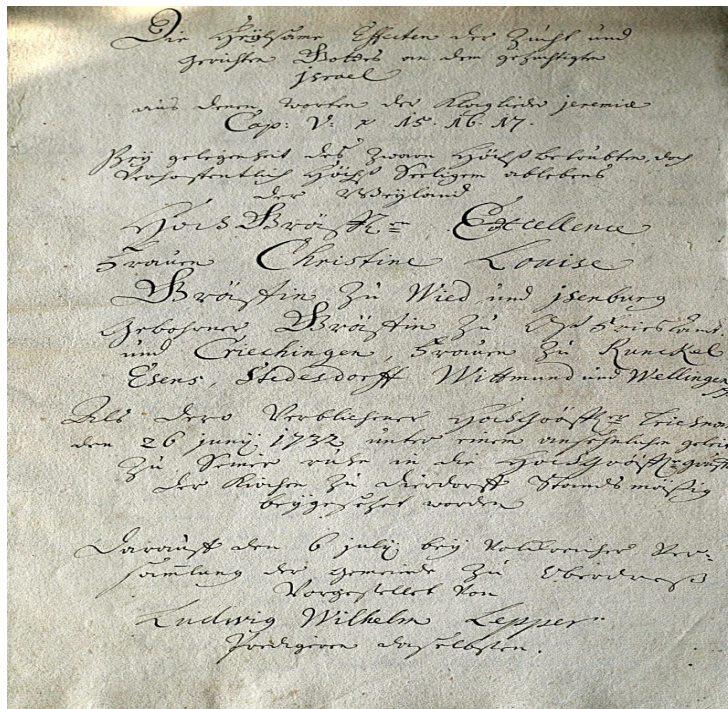 Die Heylsame Effecten der Zucht und
Gerichten Gottes an dem gezüchtigten
Israel
aus denen Worten der Klaglieder Jeremiæ
Cap: V: v 15. 16. 17.
Bey gelegenheit des zwarn Höchst betrübten, doch
Verhoffentlich Höchst Seeligen ablebens
der Weyland
HochGräffl. Excellence
Frauen Christine Louise
Gräffin zu Wied und Isenburg
Gebohrner Gräffin zu Ost Friesland
und Criechingen, Frauen zu Runckel
Esens, Stedesdorff Wittmund und Wellingen
Als dero Verblichener HochGräffl.er Leichnam
den 26 Junÿ 1732 unter einem ansehnlichen geleit
zu Seiner ruhe in die HochGräffl.
der Kirchen zu Dierdorff Standsmäßig
beygesetzet worden
Darauff den 6 July bey Volckreicher Ver-
samlung der Gemeinde zu
Vorgestellet von
Ludwig Wilhelm Lepper
Predigern daselbsten.